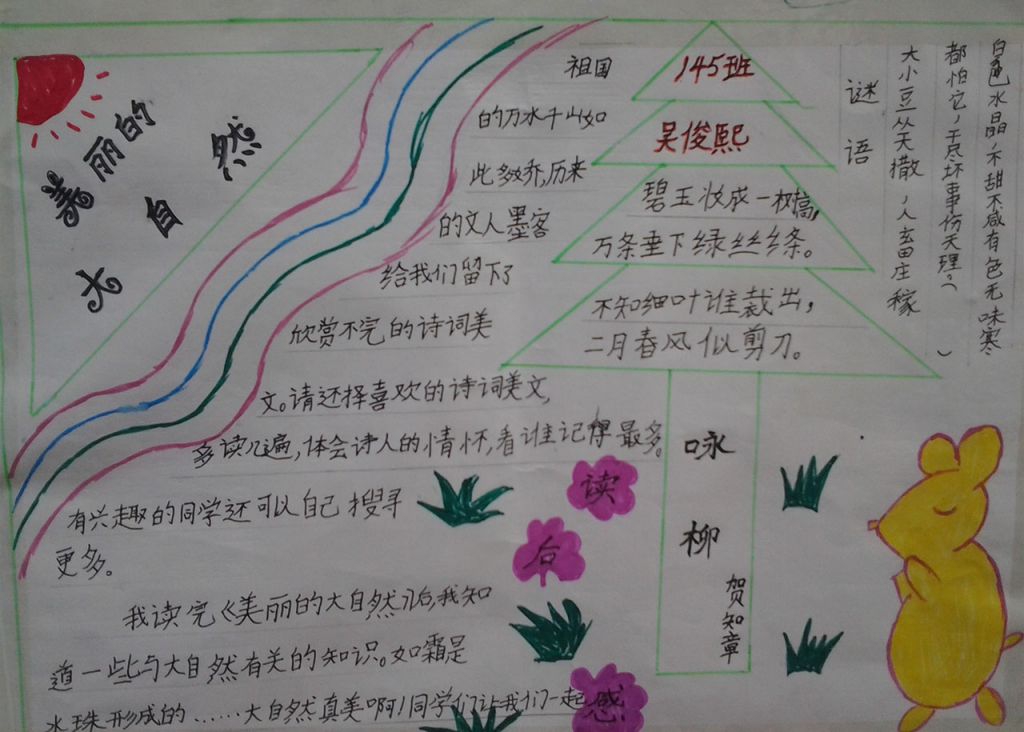 美丽的
大自然
祖国
的万水千山如
此多娇,历来
的文人墨客
给我们留下了
欣赏不完的诗词美
文。请还择喜欢的诗词美文,
多读几遍,体会诗人的情怀,看谁记得最多。
有兴趣的同学还可以自己搜寻
更多。
145班
吴俊熙
碧玉妆成一树高,
万条垂下绿丝绦。
不知细叶谁裁出,
二月春风似剪刀。
咏柳
贺知章
谜语
大小豆从天撒,人畜庄稼
都怕它,干尽坏事伤天理。(
)
白色水晶,不甜不咸有色无味寒
读后感
我读完《美丽的大自然》后,我知
道一些与大自然有关的知识。如霜是
水珠形成的……大自然真美啊!同学们让我们一起